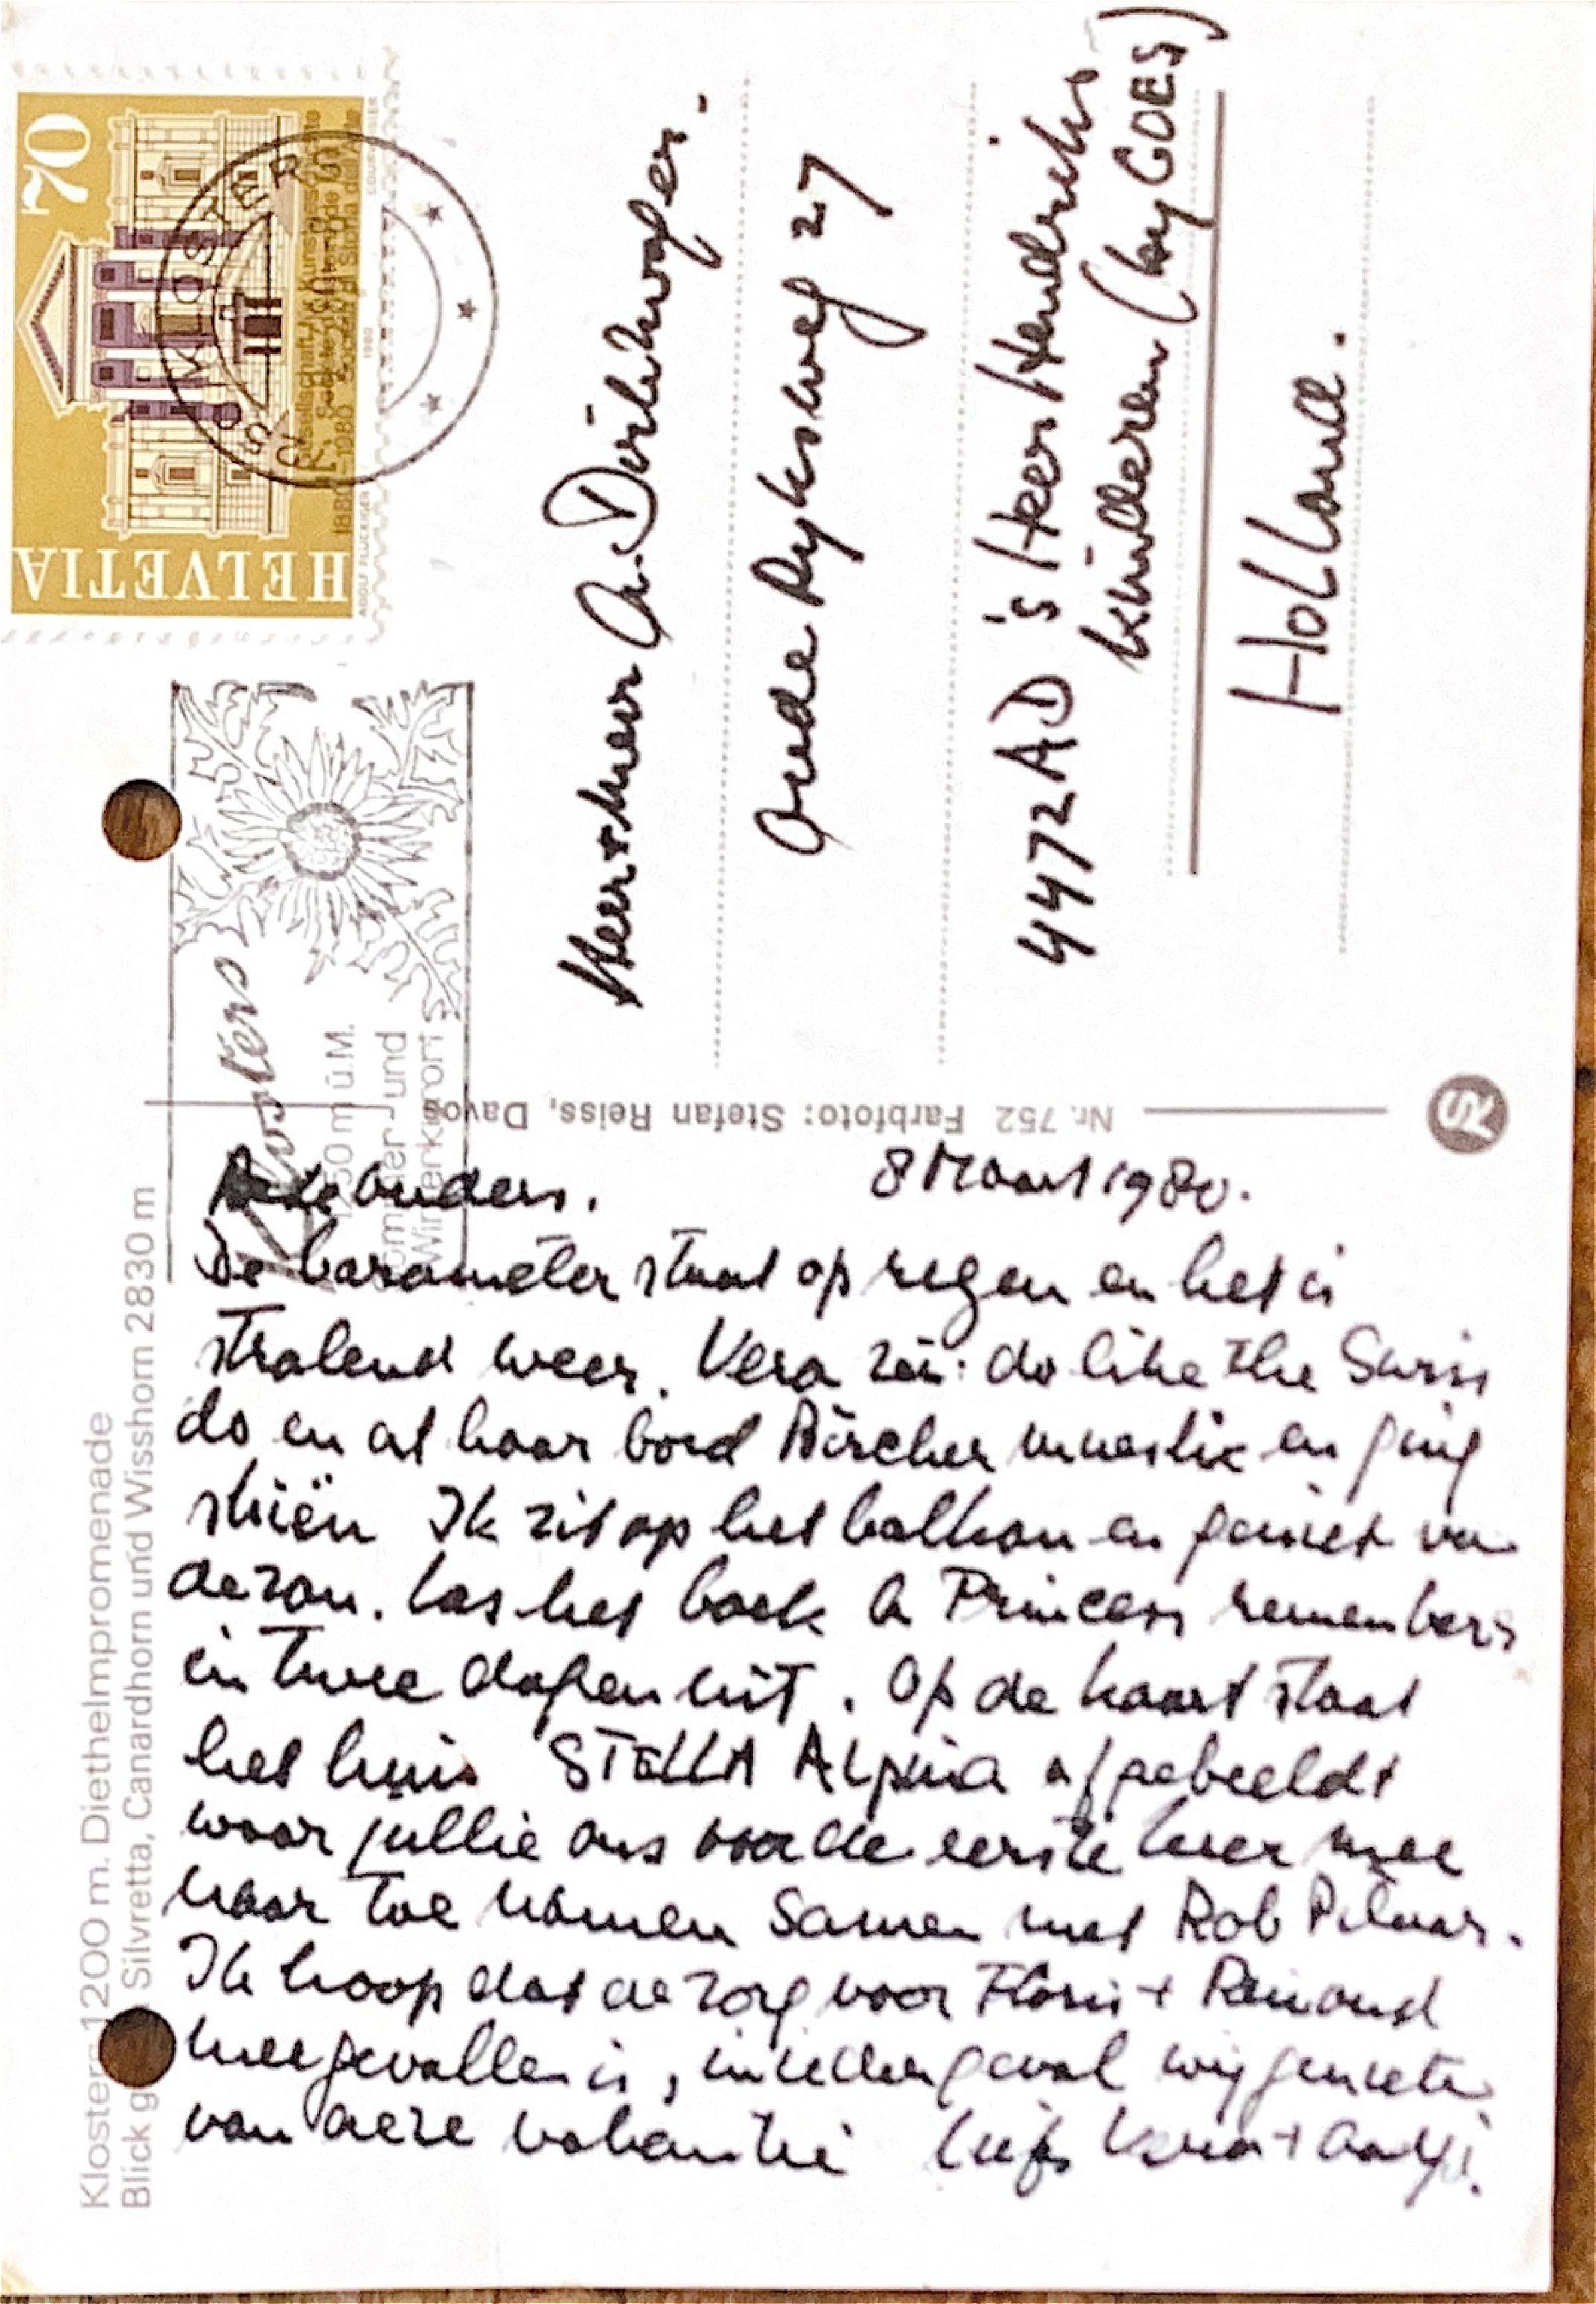 HELVETIA
70
KLOSTERS
ADOLF FLÜCKIGER
COURVOISIER
1980
Klosters
1250 m ü.M.
Sommer- und
Winterkurort
Heer + Mevr A. Dirkzwager.
Oude Ryksweg 27
4472 AD 's Heer Hendriks
kinderen (by GOES)
HoLLand.
Nr. 752 Farbfoto: Stefan Reiss, Davos
Klosters 1200 m. Diethelmpromenade
Blick g Silvretta, Canardhorn und Wisshorn 2830 m
ouders. 8 Maart 1980.
De barometer staat op regen en het is
stralend weer. Vera zei: do like the Swiss
do en at haar bord Bircher muesli en ging
skiën Ik zit op het balkon en geniet van
de zon. Las het boek A Princess remembers
in twee dagen uit. Op de kaart staat
het huis STELLA ALpina afgebeeldt
waar jullie ons de eerste keer mee
naar toe namen samen met Rob
Ik hoop dat de zorg voor Floris + Reinoud
meegevallen is, in ieder geval wij genieten
van deze vakantie Liefs Vera +